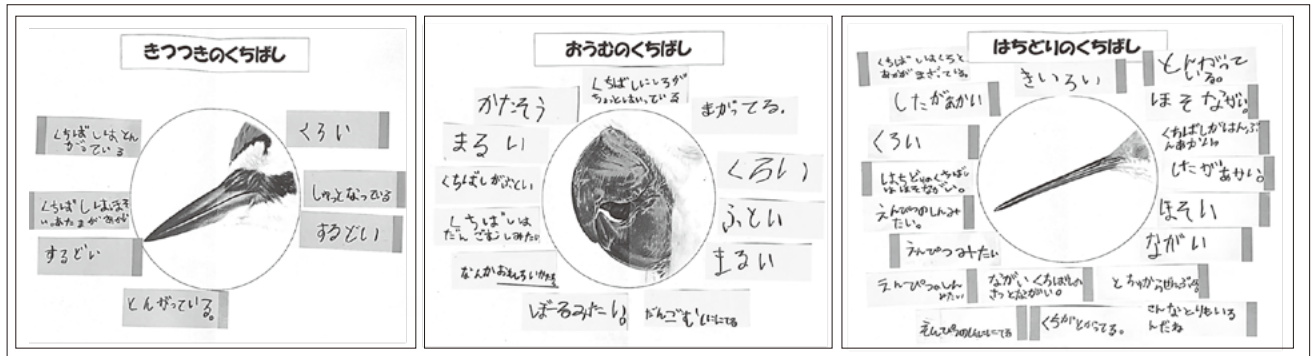 きつつきのくちばし
くちばしはとん
がっている
くろい
くちばしはほそ
しゅっとなっている
するどい
するどい
とんがっている。
おうむのくちばし
くちばしにしろが
ちょっとはいっている
かたそう
まがってる。
まるい
くちばしがぶとい
くろい
くちばしは
だんごむしみたい
ふとい
まるい
なんかおもしろいかたち
ぼーるみたい。
だんごむしににてる
はちどりのくちばし
くちばしはくろと
あかがまざっている。
きいろい
とんがって
いる。
したがあかい
ほそながい。
くろい
くちばしがはんぶ
んあかい。
はちどりのくちばし
はほそながい。
したがあかい。
えんぴつのしんみ
たい。
ほそい
えんぴつみたい
ながい
えんぴつのしん
みたい
ながいくちばしの
さっとながい。
えんぴつのしんににてる
くちがとがってる。
こんなとりもいる
んだね